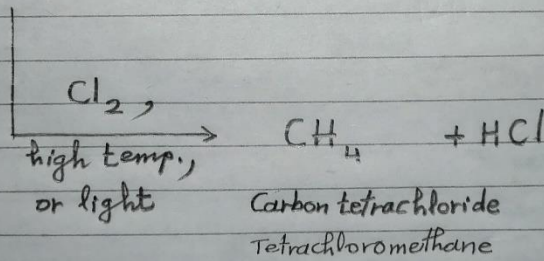 Cl₂,
high temp., CH₄ + HCl
or light Carbon tetrachloride
Tetrachloromethane